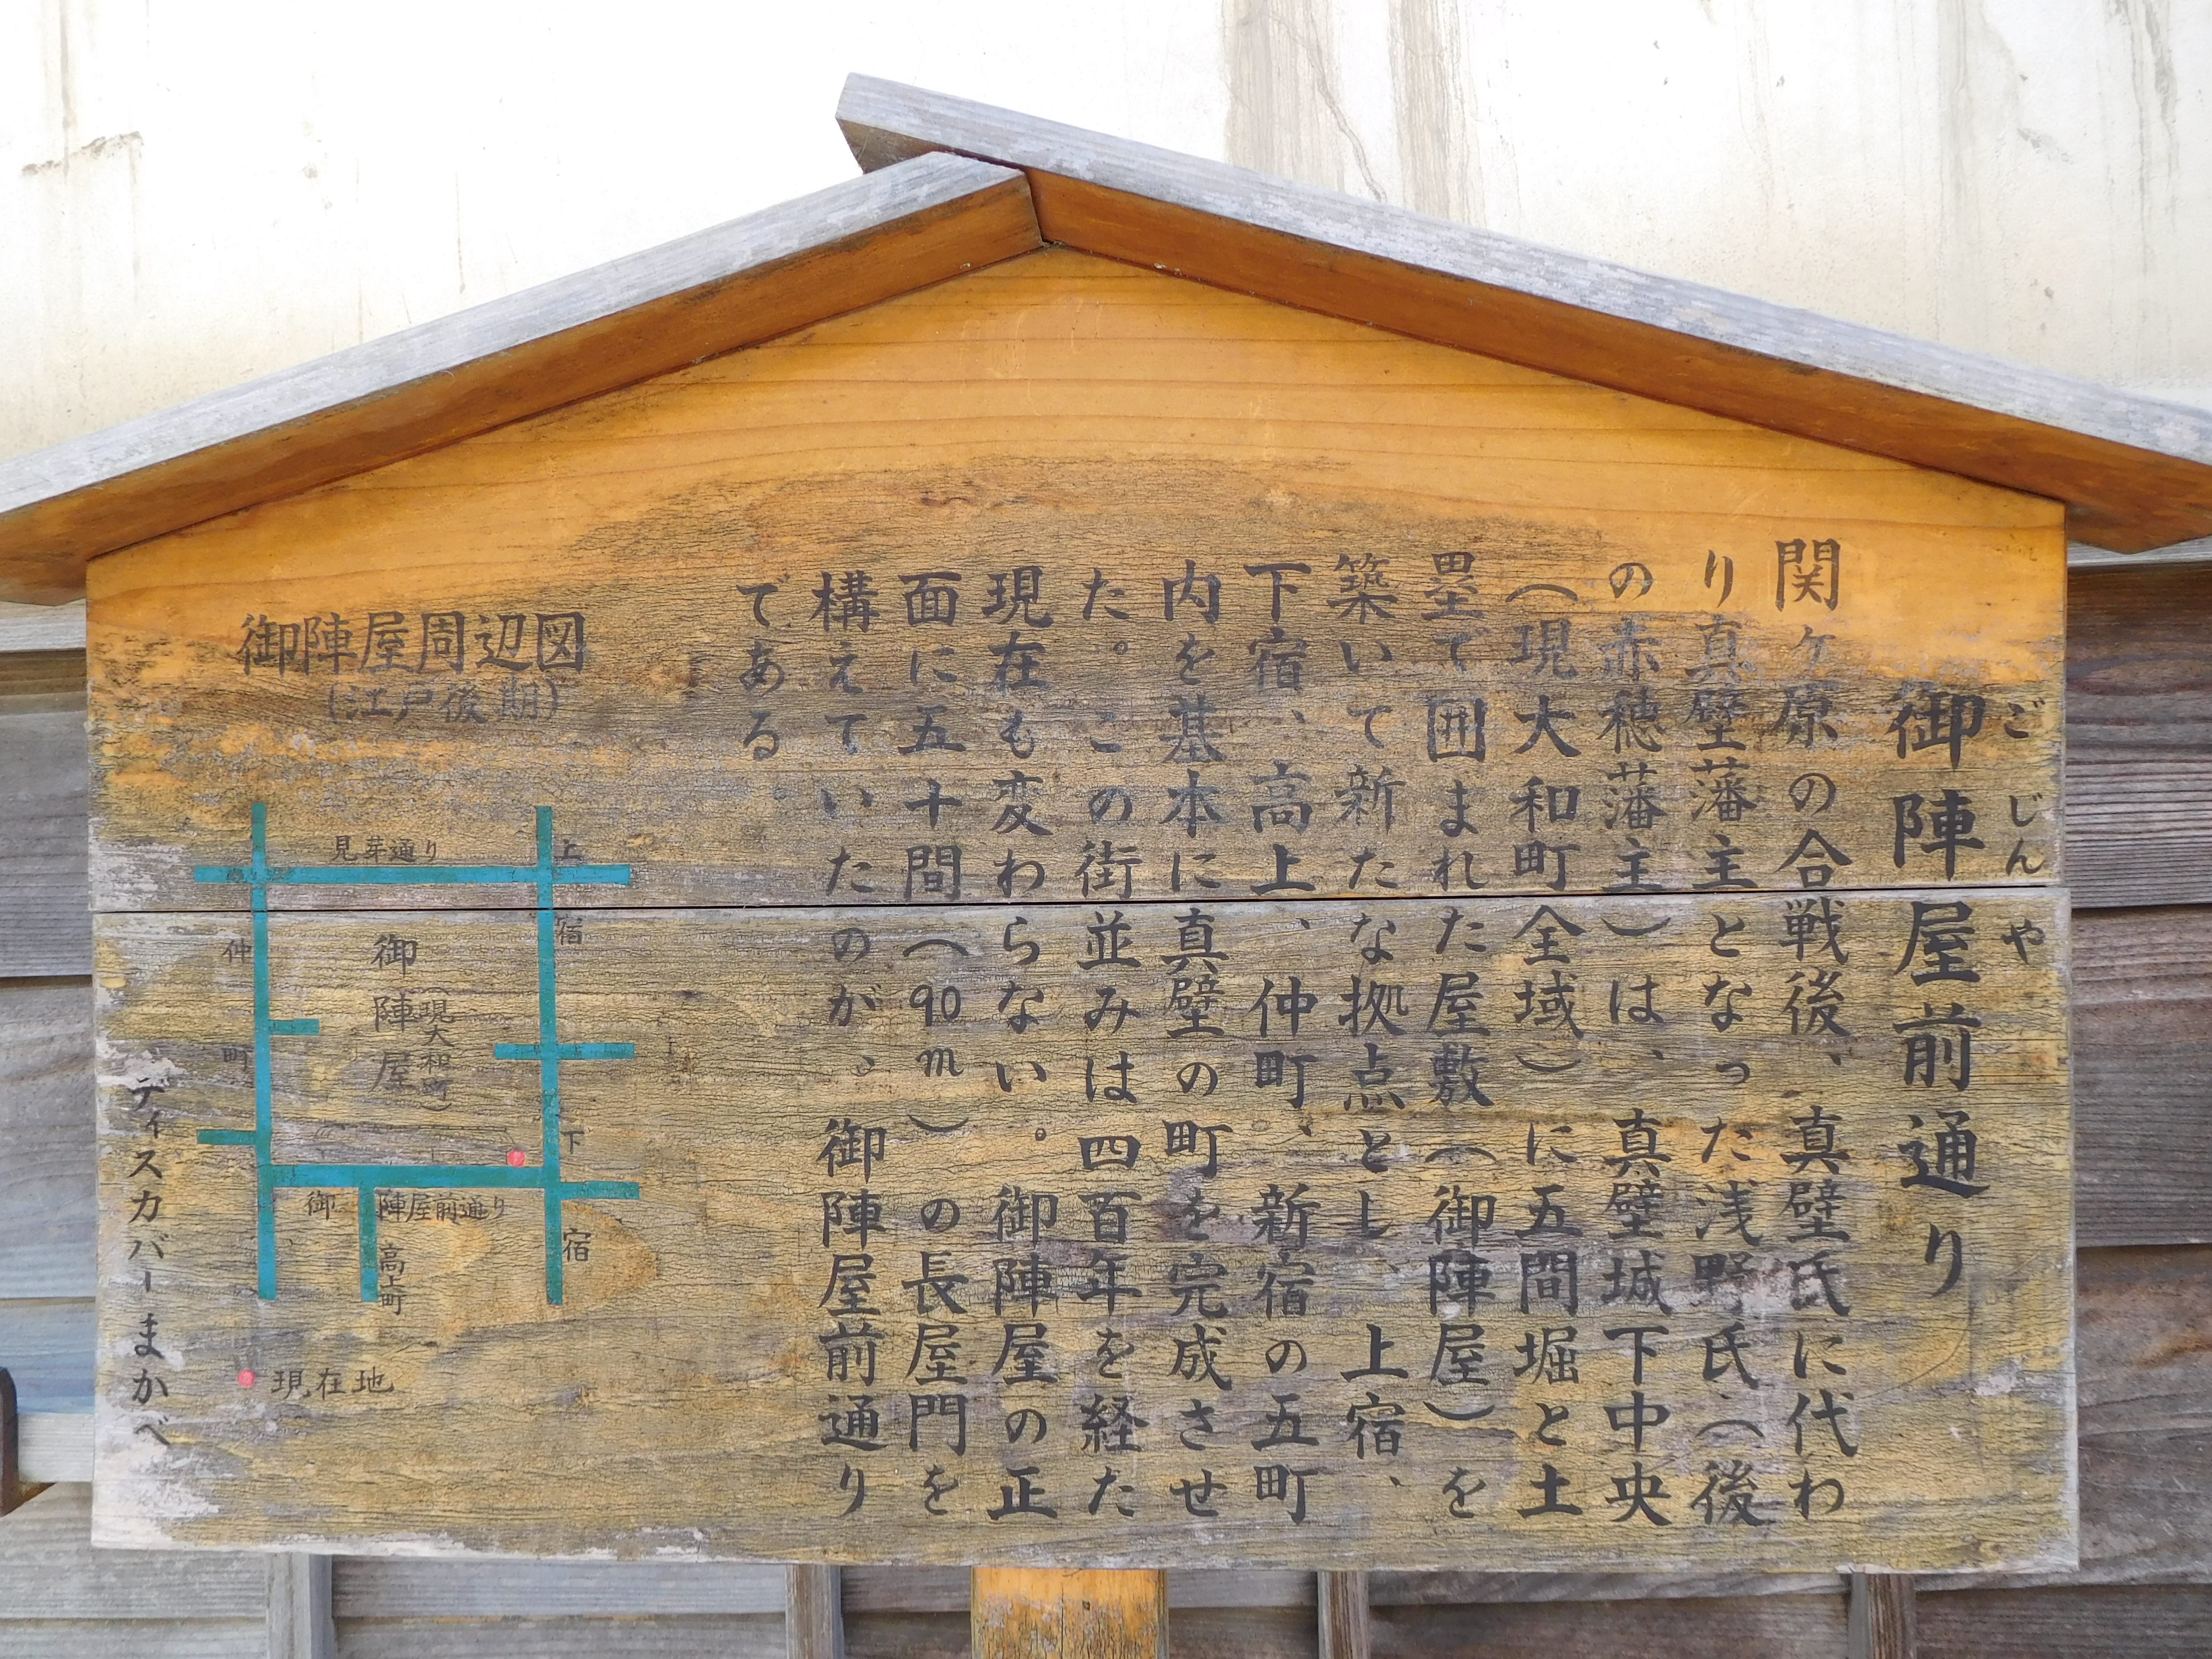 ごじんや
御陣屋前通り
関ヶ原の合戦後、真壁氏に代わ
り真壁藩主となった浅野氏（後
の赤穂藩主）は、真壁城下中央
（現大和町全域）に五間堀と土
塁で囲まれた屋敷（御陣屋）を
築いて新たな拠点とし、上宿、
下宿、高上、仲町、新宿の五町
内を基本に真壁の町を完成させ
た。この街並みは四百年を経た
現在も変わらない。御陣屋の正
面に五十間（90m）の長屋門を
構えていたのが、御陣屋前通り
である
御陣屋周辺図
（江戸後期）
見芽通り
上宿
仲町
御陣屋
（現大和町）
下宿
御陣屋前通り
高上町
現在地
ディスカバーまかべ